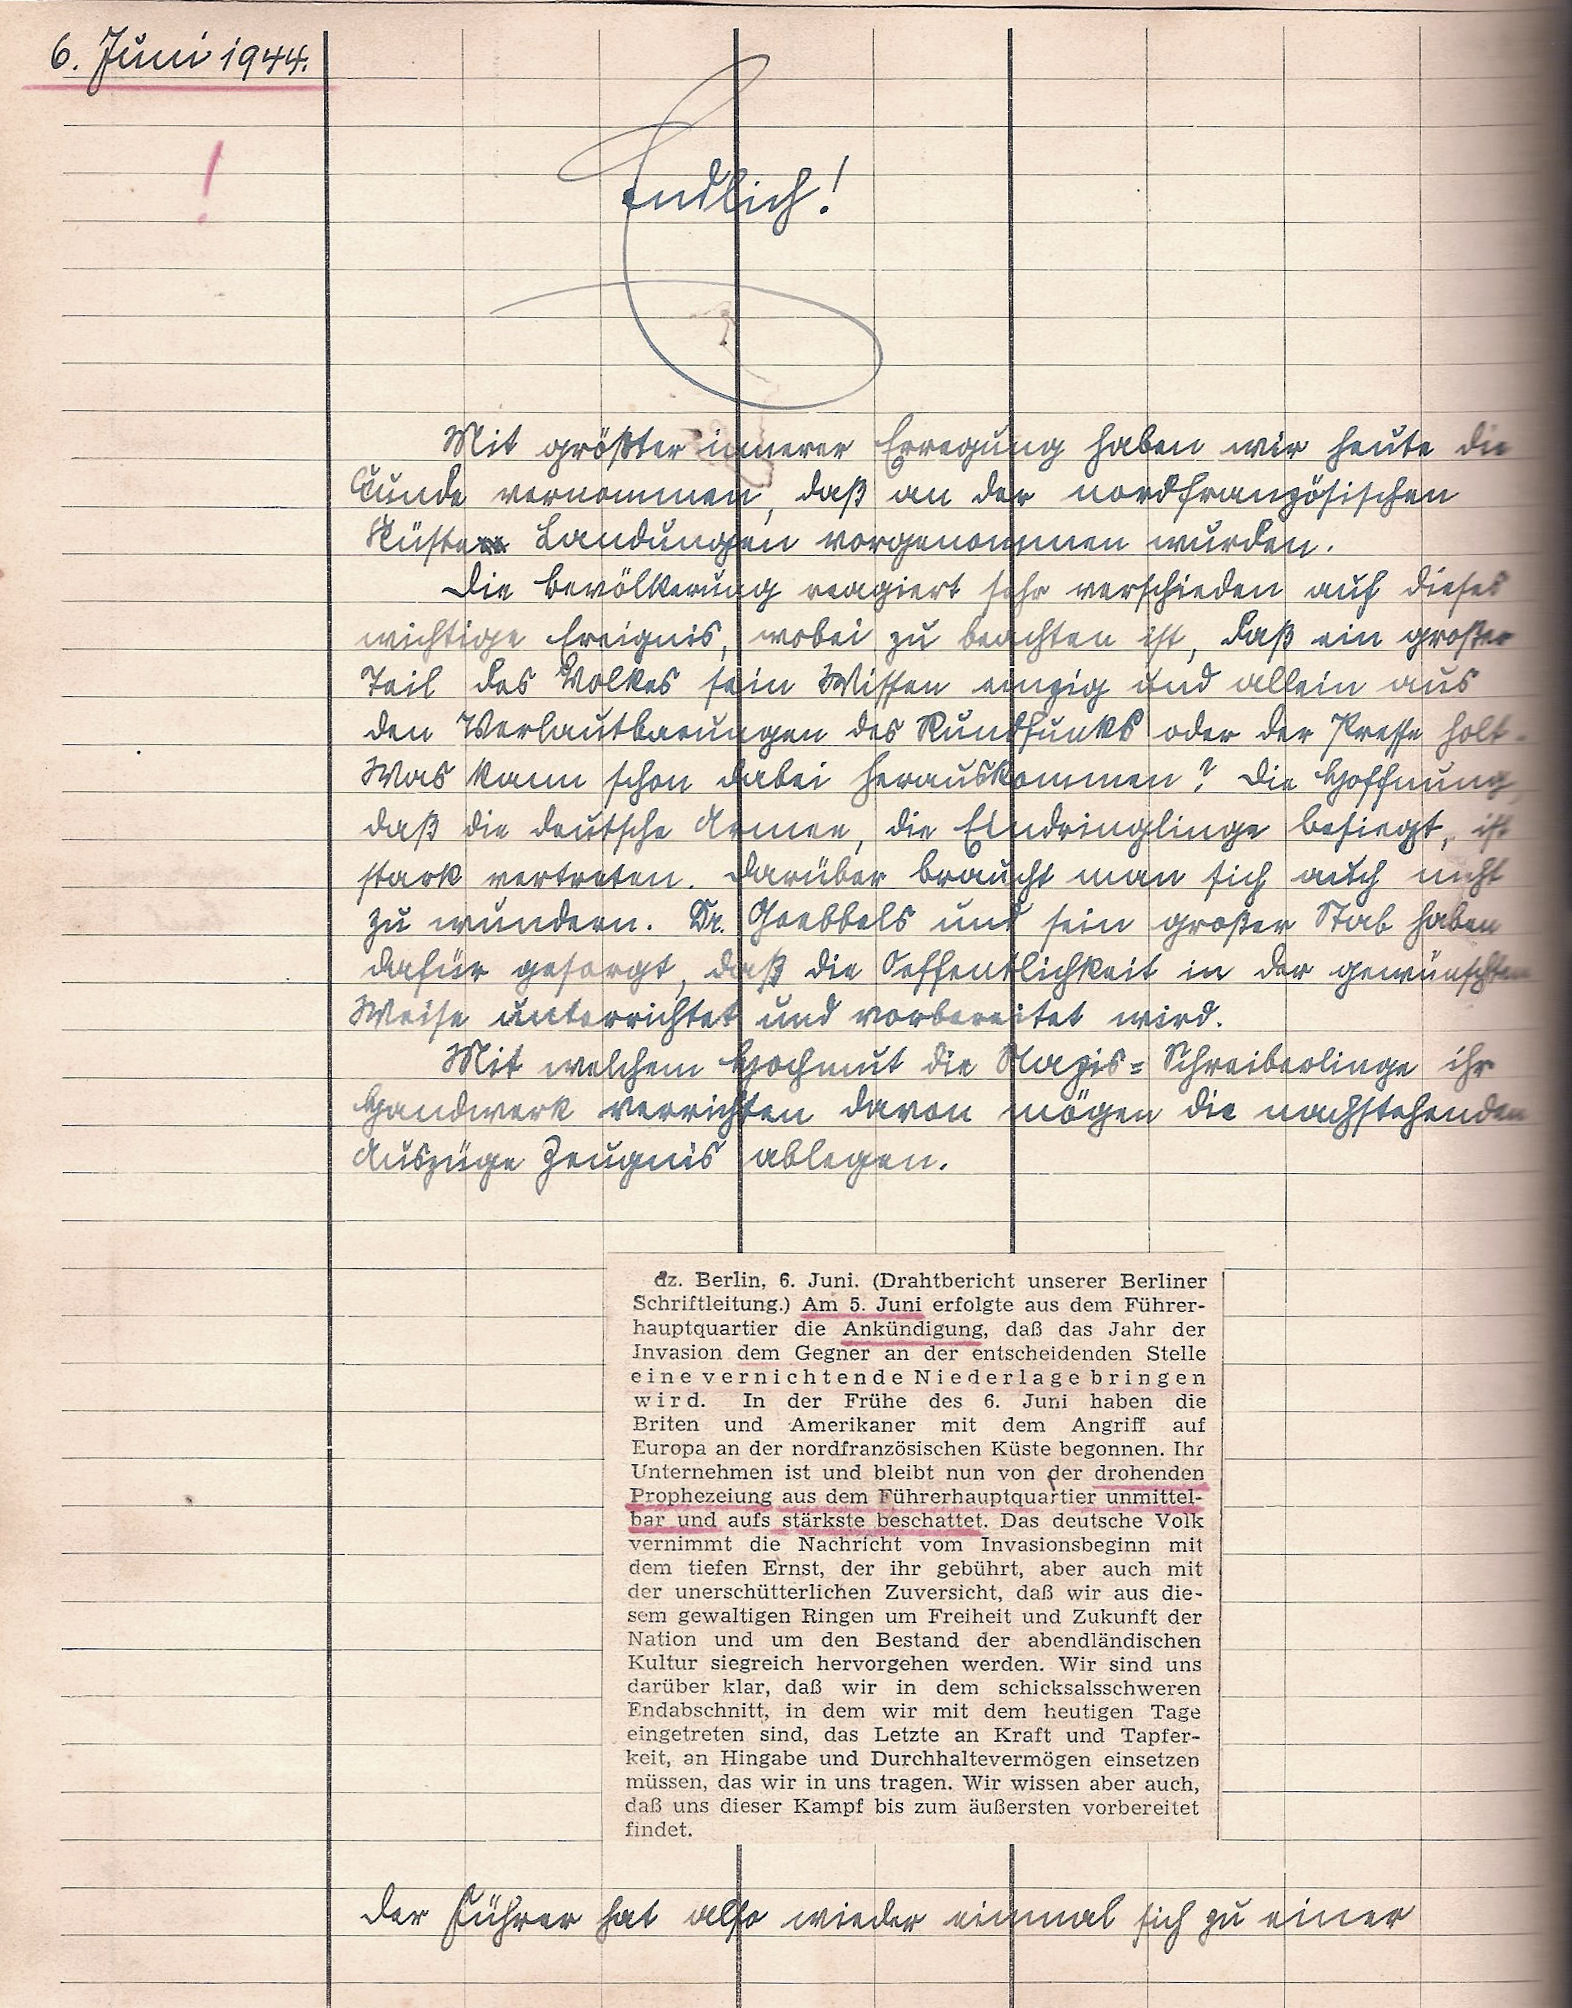 6. Juni 1944.
!
Endlich!
Mit größter innerer Erregung haben wir heute die
Kunde vernommen, daß an der nordfranzösischen
Küste Landungen vorgenommen wurden.
Die Bevölkerung reagiert sehr verschieden auf dieses
wichtige Ereignis, wobei zu beachten ist, daß ein großer
Teil des Volkes sein Wissen einzig und allein aus
den Verlautbarungen des Rundfunks oder der Presse holt.
Was kann schon dabei herauskommen? Die Hoffnung,
daß die deutsche Armee, die Eindringlinge besiegt, ist
stark vertreten. Darüber braucht man sich auch nicht
zu wundern. Dr. Goebbels und sein großer Stab haben
dafür gesorgt, daß die Oeffentlichkeit in der gewünschten
Weise unterrichtet und vorbereitet wird.
Mit welchem Hochmut die Nazis=Schreiberlinge ihr
Handwerk verrichten davon mögen die nachstehenden
Auszüge Zeugnis ablegen.
dz. Berlin, 6. Juni. (Drahtbericht unserer Berliner
Schriftleitung.) Am 5. Juni erfolgte aus dem Führer-
hauptquartier die Ankündigung, daß das Jahr der
Invasion dem Gegner an der entscheidenden Stelle
eine vernichtende Niederlage bringen
wird. In der Frühe des 6. Juni haben die
Briten und Amerikaner mit dem Angriff auf
Europa an der nordfranzösischen Küste begonnen. Ihr
Unternehmen ist und bleibt nun von der drohenden
Prophezeiung aus dem Führerhauptquartier unmittel-
bar und aufs stärkste beschattet. Das deutsche Volk
vernimmt die Nachricht vom Invasionsbeginn mit
dem tiefen Ernst, der ihr gebührt, aber auch mit
der unerschütterlichen Zuversicht, daß wir aus die-
sem gewaltigen Ringen um Freiheit und Zukunft der
Nation und um den Bestand der abendländischen
Kultur siegreich hervorgehen werden. Wir sind uns
darüber klar, daß wir in dem schicksalsschweren
Endabschnitt, in dem wir mit dem heutigen Tage
eingetreten sind, das Letzte an Kraft und Tapfer-
keit, an Hingabe und Durchhaltevermögen einsetzen
müssen, das wir in uns tragen. Wir wissen aber auch,
daß uns dieser Kampf bis zum äußersten vorbereitet
findet.
Der Führer hat also wieder einmal sich zu einer